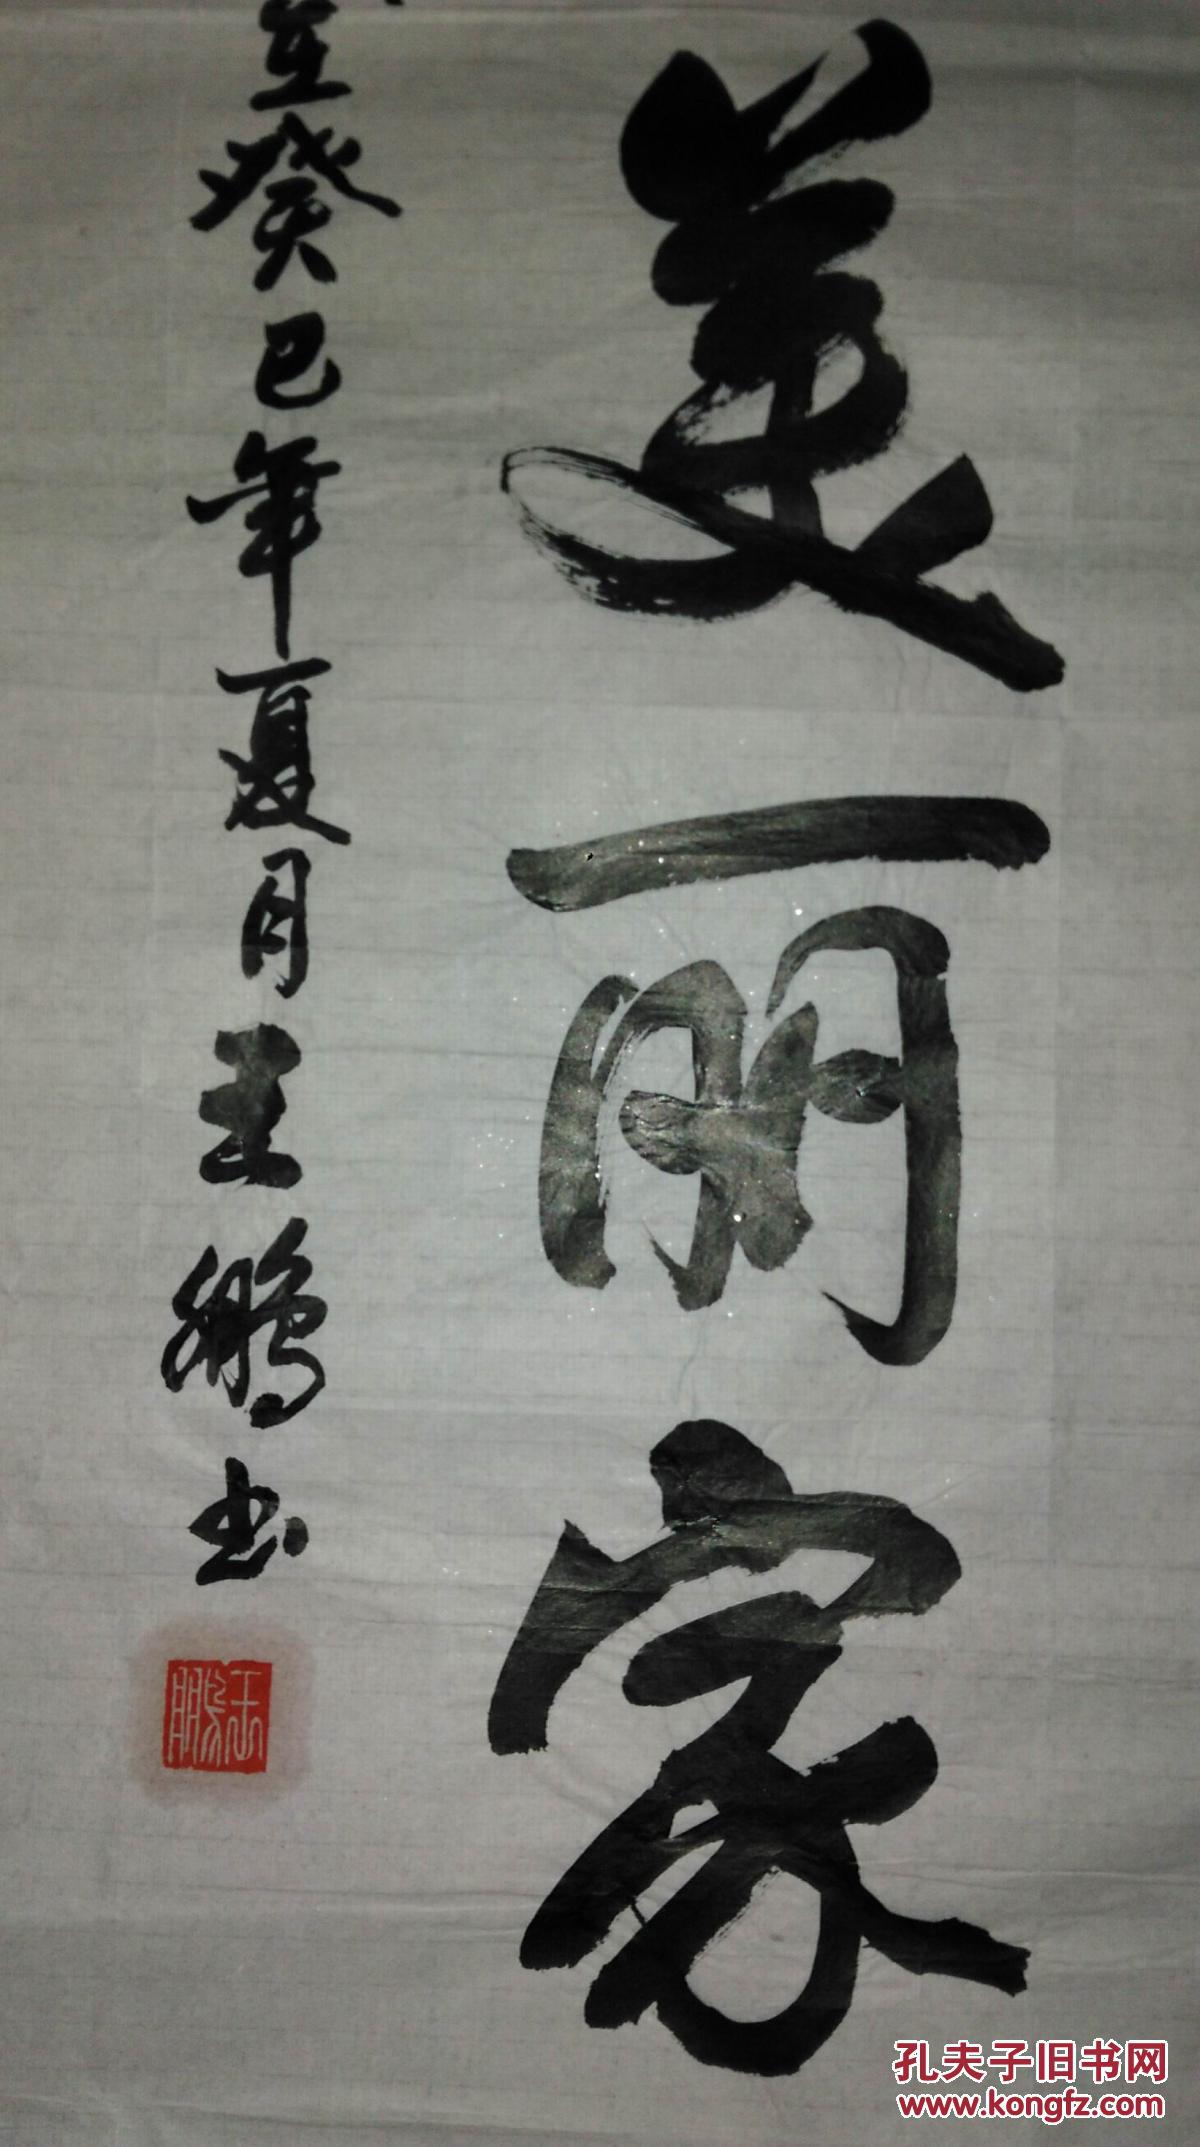 美丽家
癸巳年夏月王鹏书
王鹏
孔夫子旧书网
www.kongfz.com